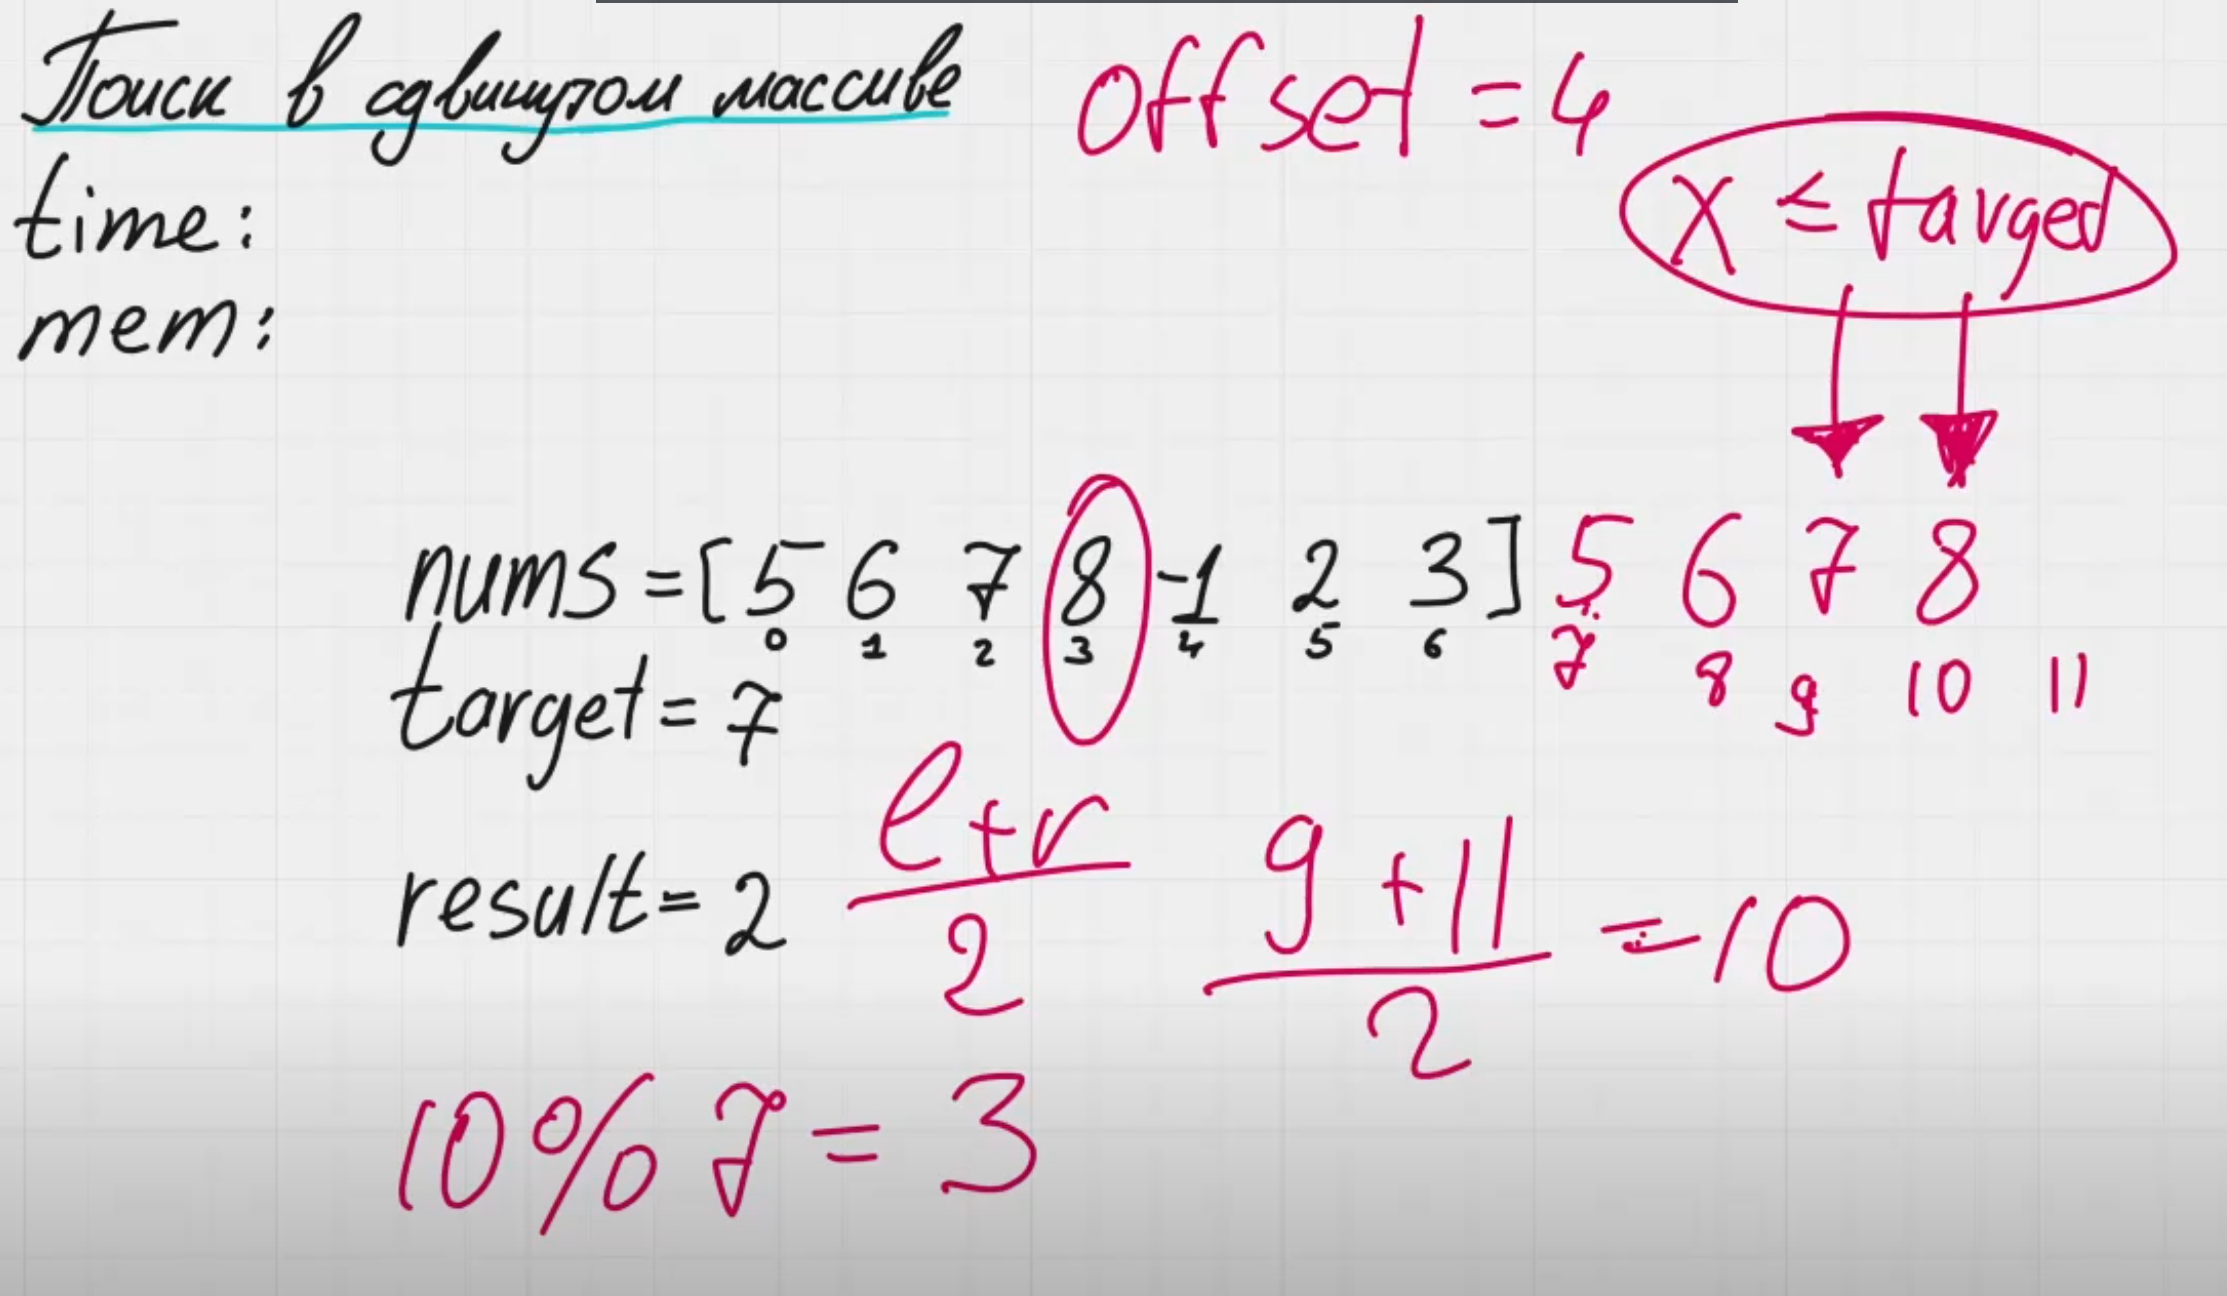 Поиск в сдвинутом массиве
offset = 4
x ≤ targed
time:
mem:
nums = [5 6 7 8 -1 2 3] 5 6 7 8
0 1 2 3 4 5 6 7 8 9 10 11
target = 7
result = 2
l+r
2
9+11
2
=10
10%7=3